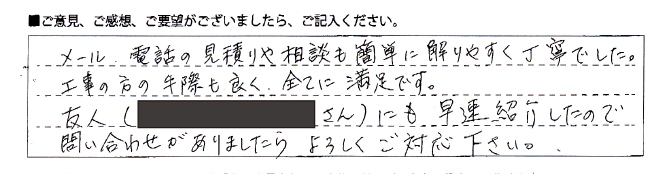 ■ご意見、ご感想、ご要望がございましたら、ご記入ください。
メール、電話の見積りや相談も簡単に解りやすく丁寧でした。
工事の方の手際も良く、全てに満足です。
友人(さん)にも早速紹介したので
問い合わせがありましたらよろしくご対応下さい。